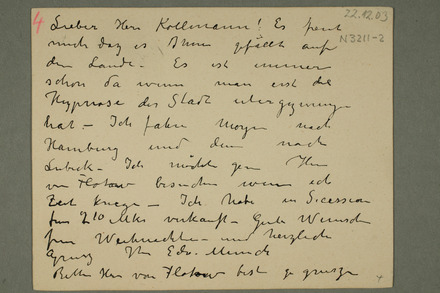 4
22.12.03
N3211-2
Lieber Herr Kollmann! Es freut
mich daß es Ihnen gefällt auf
dem Lande - Es ist immer
schon da wenn man erst die
Hypnose der Stadt
hat - Ich fahre Morgen nach
Hamburg und dann nach
Lubeck - Ich möchte gern Herrn
von Flotow besuchen wenn ich
Zeit kriege - Ich habe in Secession
fur Mks verkauft - Gute Wunsche
fur Weihnachten - und herzliche
Gruss Ihr Edv. Munch
Bitte Herr von Flotow best zu grussen